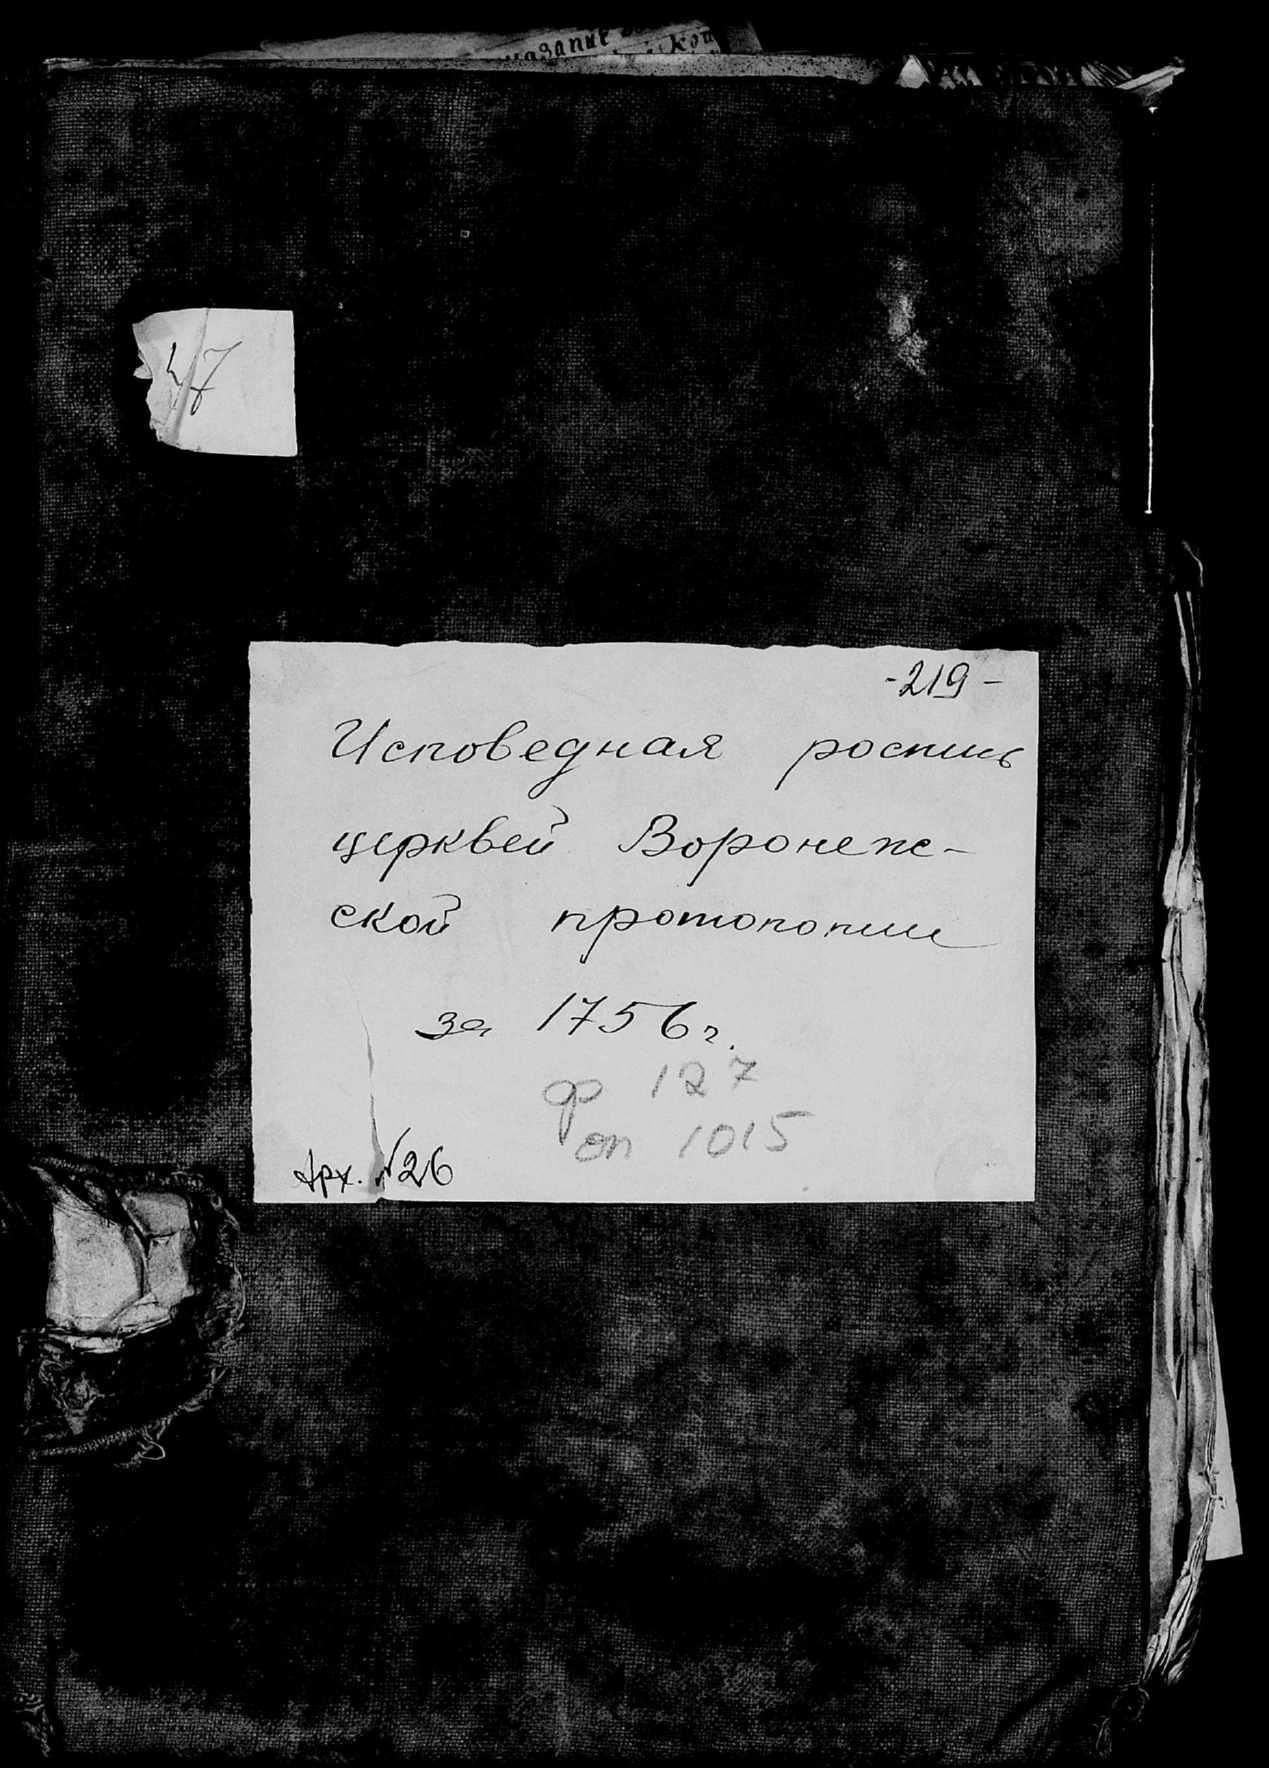 47
-219-
Исповедная роспись
церквей Воронеж-
ской протопопии
за 1756 г.
ф 127
оп 1015
Арх. №26